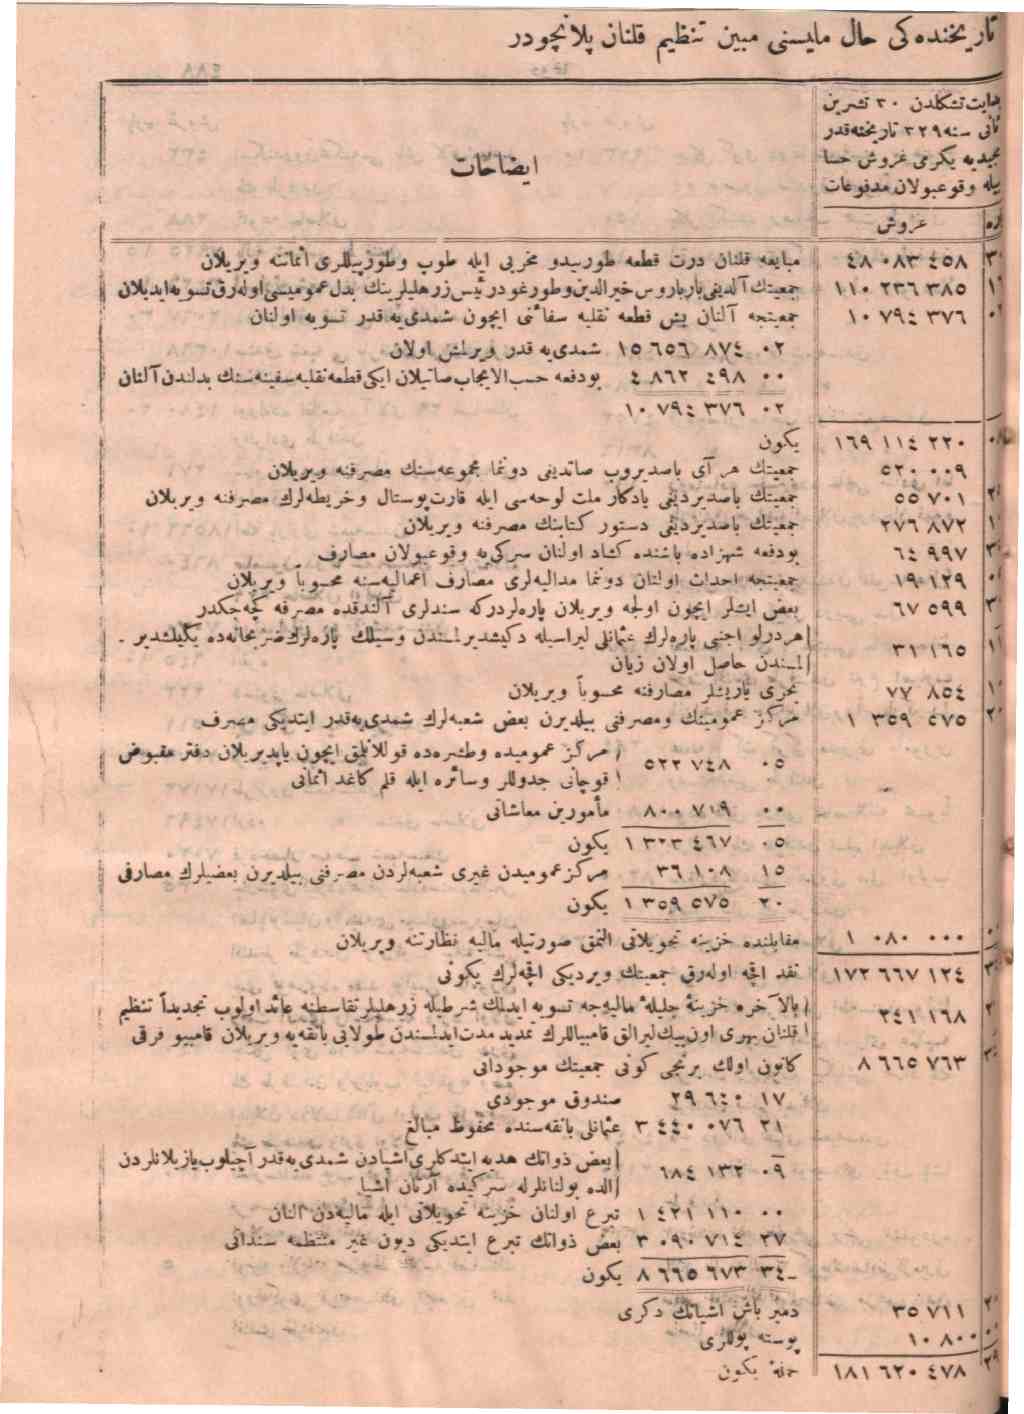 تاریخنده‌کی حال مالیسنی مبین تنظیم قلنان پلانچودر
بدایت تشکلدن ٣٠ تشرین
ثانی سنه ٣٢٩ تاریخنه قدر
مجیدیه یکرمی غروش حسا
بیله وقوعبولان مدفوعات
ایضاحات
پاره غروش
٤٨ ٠٨٣ ٤٥٨ مبایعه قلنان درت قطعه طورپیدو مخربی ایله طوپ وطورپیللری اثماننه ویریلان
١١٠ ٢٣٦ ٣٨٥ جمعیتك آلدیغی بارباروس خیرالدین وطورغود رئیس زرهلیلرینك بدل عمومیسی اوله‌رق تسویه ایدیلان
١٠ ٧٩٤ ٣٧٦ جمعیتجه آلنان بش قطعه نقلیه سفائنی ایچون شمدی‌یه قدر تسویه اولنان
٠٢ ١٥ ٦٥٦ ٨٧٤ شمدی‌یه قدر ویرلمش اولان
٠٠ ٤ ٨٦٢ ٤٩٨ بودفعه حسب الایجاب صاتیلان ایکی قطعه نقلیه سفینه‌سنك بدلندن آلنان
٠٢ ١٠ ٧٩٤ ٣٧٦
١٦٩ ١١٤ ٢٢٠ یکون
٥٢٠ ٠٠٩ جمعیتك هر آی باصدیروب صاتدیغی دونما مجموعه‌سنك مصرفنه ویریلان
٥٥ ٧٠١ جمعیتك باصدیردیغی یادکار ملت لوحه‌سی ایله قارت‌پوستال وخریطه‌لرك مصرفنه ویریلان
٢٧٦ ٨٧٢ جمعیتك باصدیردیغی دستور کتابنك مصرفنه ویریلان
٦٤ ٩٩٧ بودفعه شهزاده باشنده کشاد اولنان سرکی‌یه وقوعبولان مصارف
١٩ ١٢٩ جمعیتجه احداث اولنان دونما مدالیه‌لری مصارف اعمالیه‌سنه محسوباً ویریلان
٦٧ ٥٩٩ بعض ایشلر ایچون اولجه ویریلان پاره‌لردرکه سندلری آلندقده مصرفه کچه‌جکدر
٣١ ١٦٥ هردرلو اجنبی پاره‌لرك عثمانلی لیراسیله دکیشدیرلمسندن وسیلك پاره‌لرك ضربخانه‌ده یکیلشدیر.
لمسندن حاصل اولان زیان
٧٧ ٨٥٤ بحری یاریشلر مصارفنه محسوباً ویریلان
١ ٣٥٩ ٥٧٥ مرکز عمومینك ومصرفنی بیلدیرن بعض شعبه‌لرك شمدی‌یه قدر ایتدیکی مصرف
٠٥ ٥٢٢ ٧٤٨ مرکز عمومیده وطشره‌ده قوللانیلمق ایچون یاپدیریلان دفتر مقبوض
قوچانی جدوللر وسائره ایله قلم کاغد اثمانی
٠٠ ٨٠٠ ٧١٩ مأمورین معاشاتی
٠٥ ١ ٣٢٣ ٤٦٧ یکون
١٥ ٣٦ ١٠٨ مرکز عمومیدن غیری شعبه‌لردن مصرفنی بیلدیرن بعضیلرك مصارفی
٢٠ ١ ٣٥٩ ٥٧٥ یکون
١ ٠٨٠ ٠٠٠ مقابلنده خزینه تحویلاتی آلنمق صورتیله مالیه نظارتنه ویریلان
١٧٢ ٦٦٧ ١٢٤ نقد اقچه اوله‌رق جمعیتك ویردیکی اقچه‌لرك یکونی
٣٤١ ١٦٨ بالاخره خزینهٔ جلیلهٔ مالیه‌جه تسویه ایدلك شرطیله زرهلیلر تقاسطنه عائد اولوب تجدیداً تنظیم
قلنان بهری اون بیك لیرالق قامبیاللرك تمدید مدت ایدلمسندن طولایی بانقه‌یه ویریلان قامبیو فرقی
٨ ٦٦٥ ٧٦٣ کانون اولك برنجی کونی جمعیتك موجوداتی
١٧ ٢٩ ٦٤٠ صندوق موجودی
٢١ ٣ ٤٤٠ ٠٧٦ عثمانلی بانقه‌سنده محفوظ مبالغ
٠٩ ٦٨٤ ١٣٢ بعض ذواتك هدیه ایتدکلری اشیادن شمدی‌یه قدر آچیلوب یازیلانلردن
الده بولنانلرله سرکیده آرتان اشیا
٠٠ ١ ٤٢١ ١١٠ تبرع اولنان خزینه تحویلاتی ایله مالیه‌دن آلنان
٢٧ ٣ ٠٩٠ ٧١٤ بعض ذواتك تبرع ایتدیکی دیون غیر منتظمه سنداتی
٣٤ ٨ ٦٦٥ ٦٧٣ یکون
٣٥ ٧١١ دمیر باش اشیانك دکری
١٠ ٨٠٠ پوسته پوللری
١٨١ ٦٢٠ ٤٧٨ جملهٔ یکون